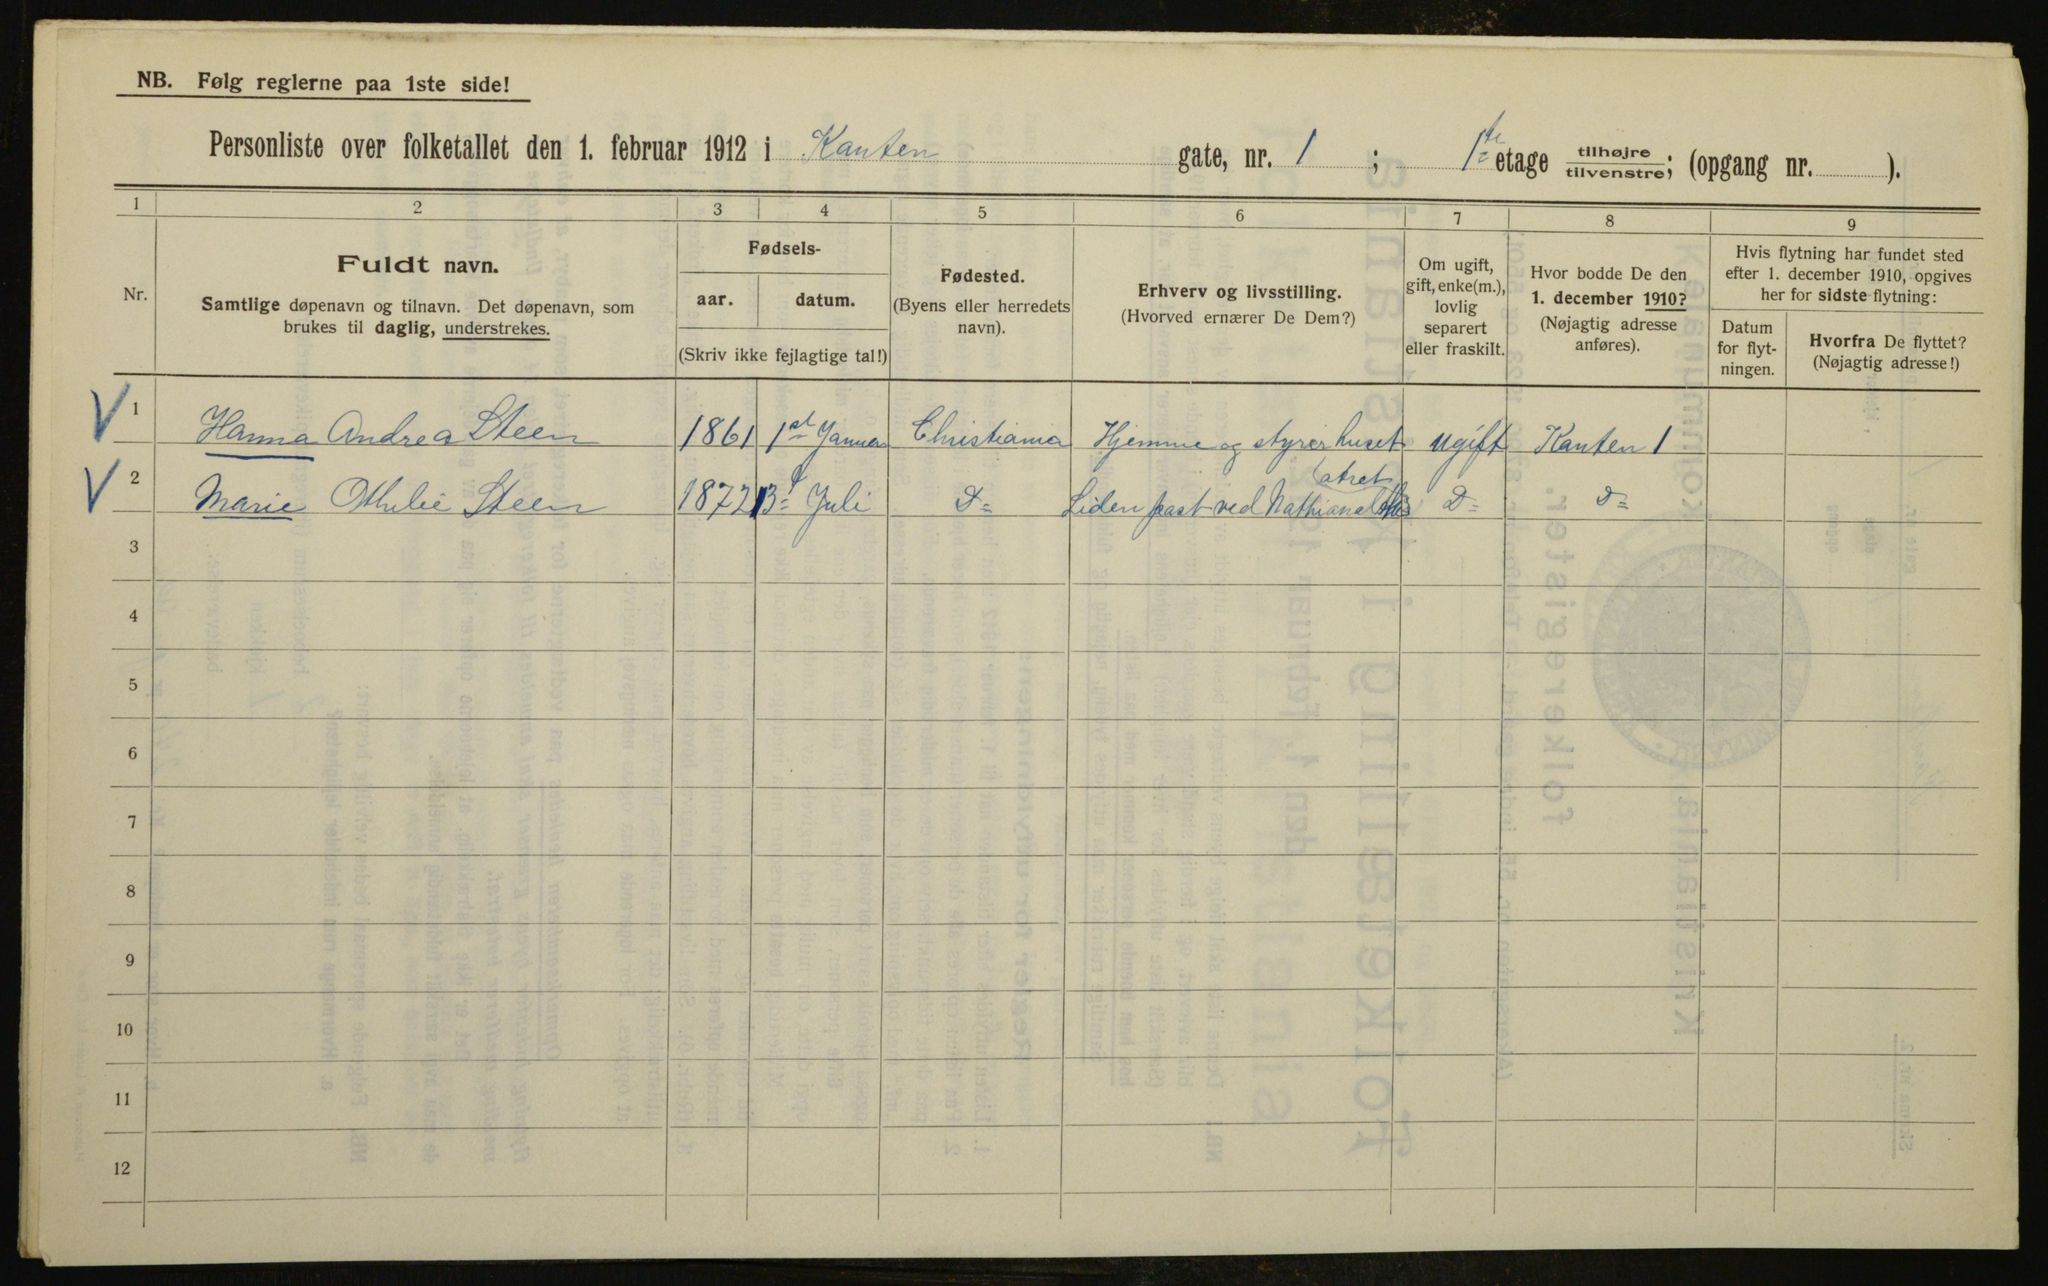 NB. Følg reglerne paa 1ste side!
Personliste over folketallet den 1. februar 1912 i Kanten gate, nr. 1 ; 1ste etage tilhøjre/tilvenstre; (opgang nr. ).
1 2 3 4 5 6 7 8 9
Nr.
Fuldt navn.
Samtlige døpenavn og tilnavn. Det døpenavn, som
brukes til daglig, understrekes.
Fødsels-
aar. datum.
(Skriv ikke fejlagtige tal!)
Fødested.
(Byens eller herredets
navn).
Erhverv og livsstilling.
(Hvorved ernærer De Dem?)
Om ugift,
gift, enke(m.),
lovlig
separert
eller fraskilt.
Hvor bodde De den
1. december 1910?
(Nøjagtig adresse
anføres).
Hvis flytning har fundet sted
efter 1. december 1910, opgives
her for sidste flytning:
Datum
for flyt-
ningen.
Hvorfra De flyttet?
(Nøjagtig adresse!)
V 1 Hanna Andrea Steen 1861 1st Januar Christiania Hjemme og styrer huset ugift Kanten 1
V 2 Marie Othilie Steen 1872 Juli D= Liden past ved Nathional atret D= D=
3
4
5
6
7
8
9
10
11
12